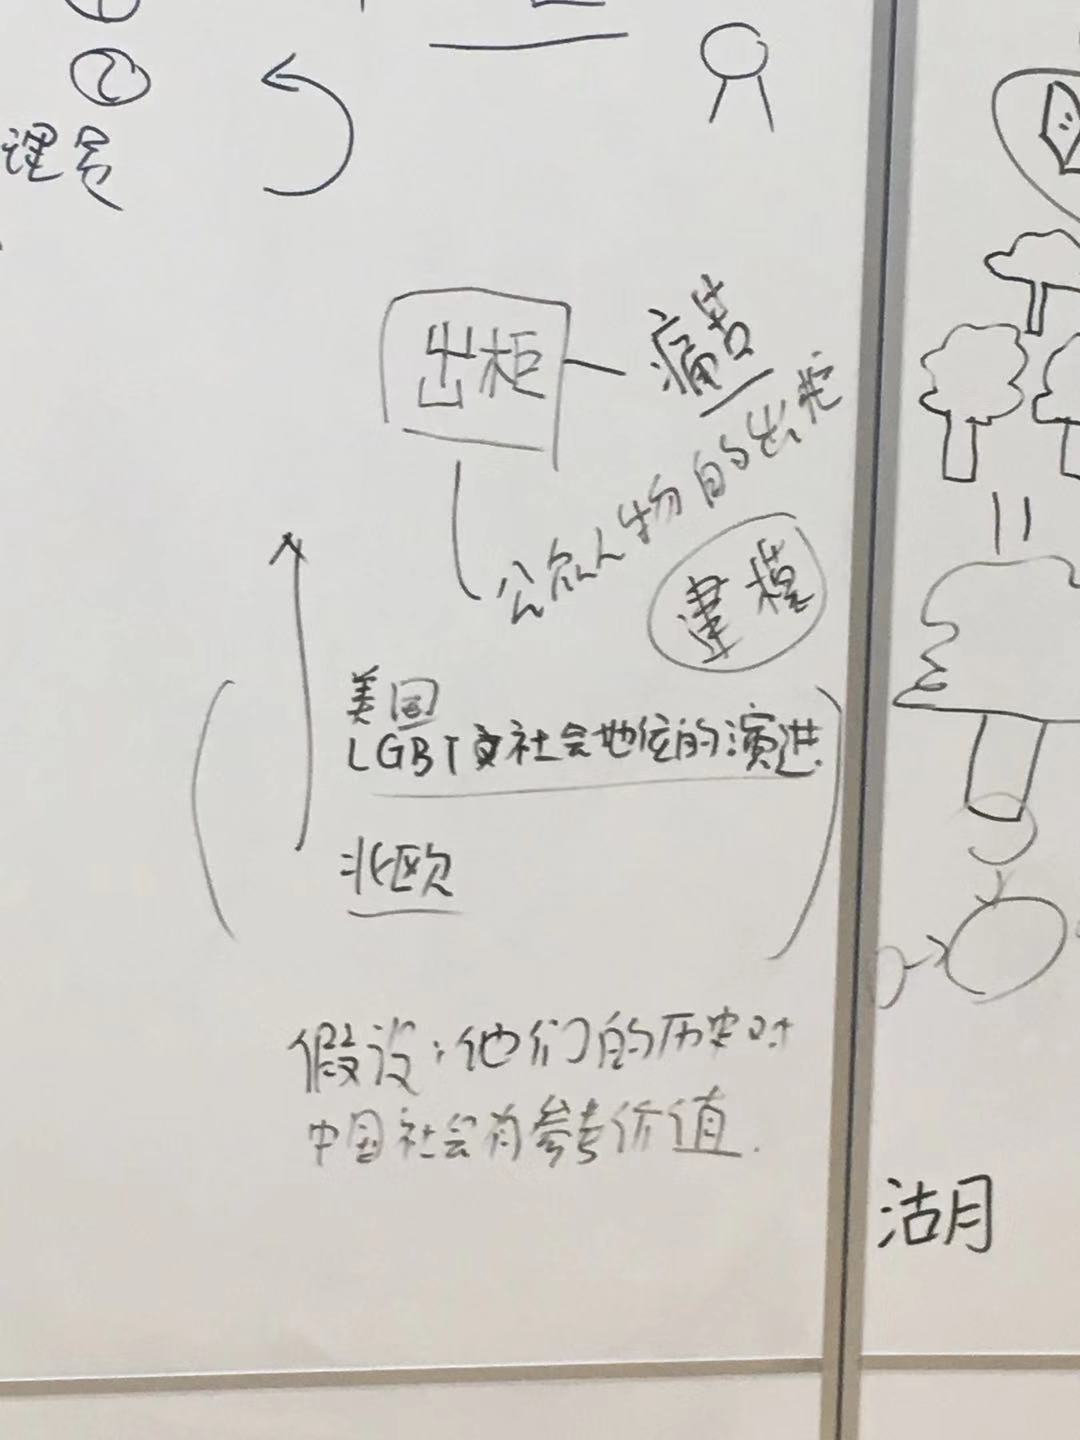 出柜
痛苦
公众人物的出柜
建模
美国
LGBT 社会地位的演进
北欧
假设：他们的历史对
中国社会有参考价值.
湖